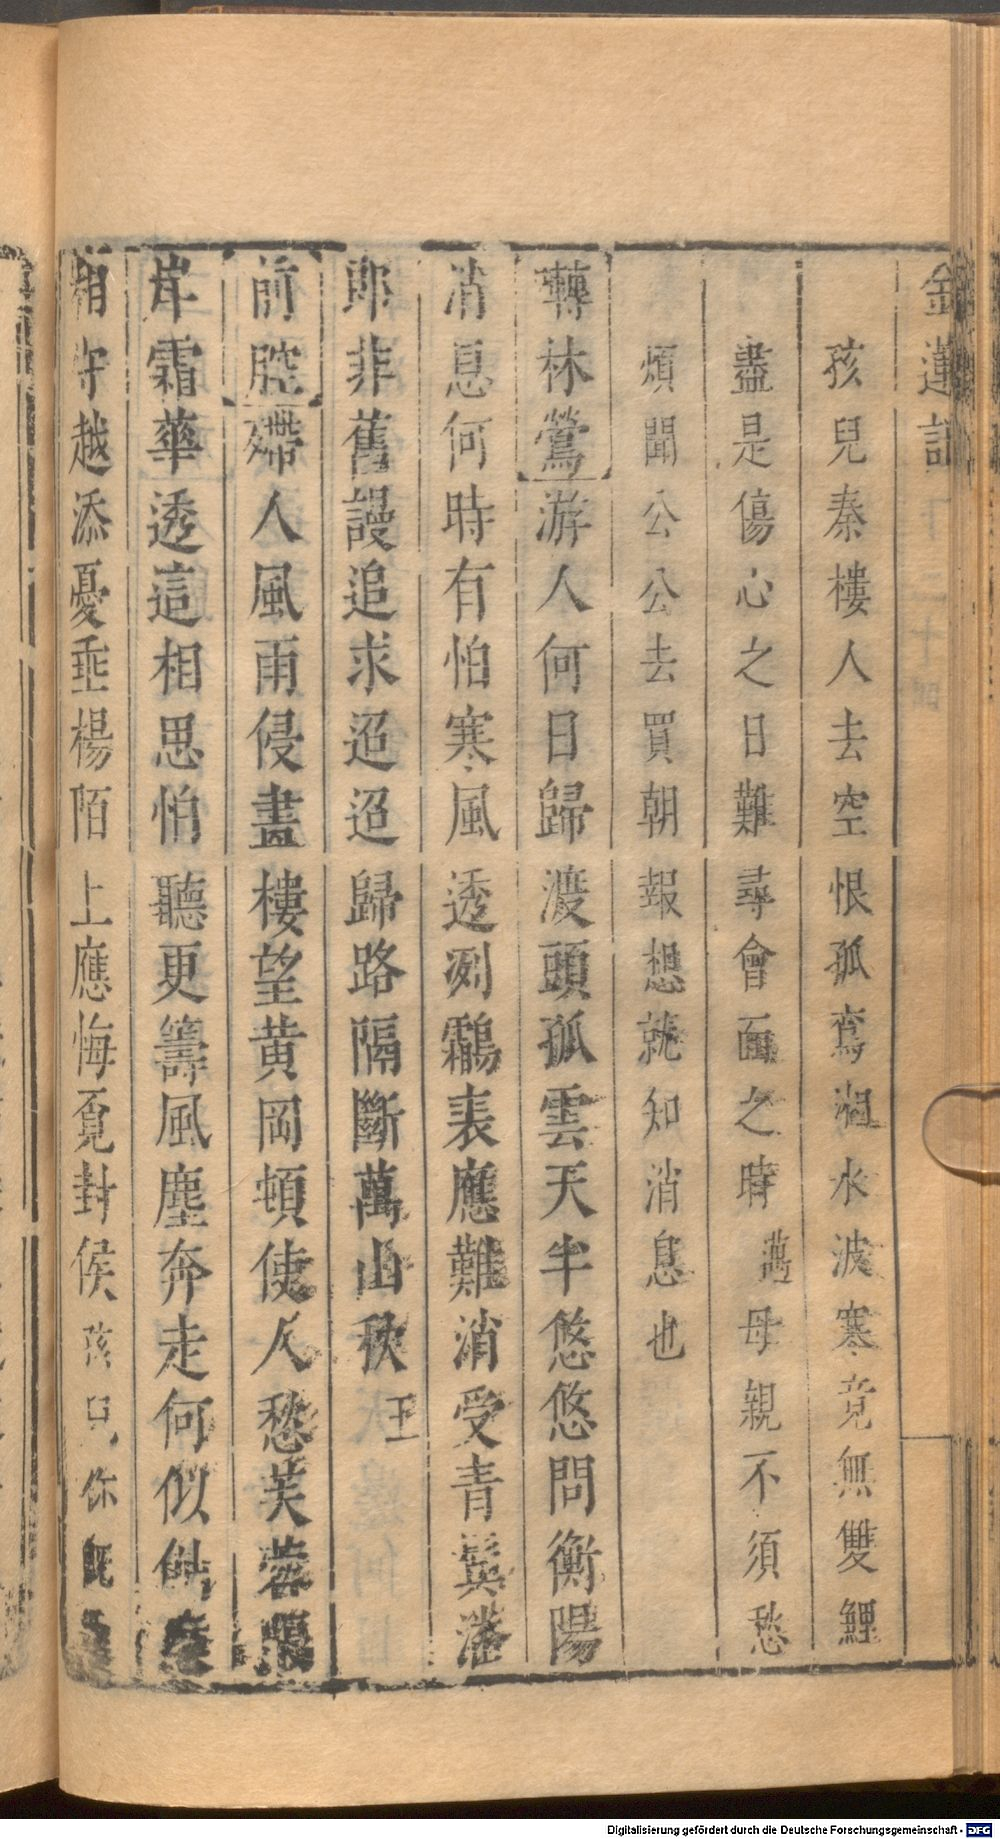 金蓮記
孩兒秦樓人去空恨孤鸞湘水波寒竟無雙鯉
盡是傷心之日難尋會面之時邁母親不須愁
煩聞公公去買朝報想就知消息也
囀林鶯游人何日歸渡頭孤雲天半悠悠問衡陽
消息何時有怕寒風透冽鸘裘應難消受青鬢潘
郎非舊謾追求迢迢歸路隔斷萬山秋王
前腔滯人風雨侵盡樓望黃岡頓使人愁芙蓉
岸霜華透這相思怕聽更籌風塵奔走何似
相守越添憂垂楊陌上應悔覓封侯孩兒你既
Digitalisierung gefördert durch die Deutsche Forschungsgemeinschaft - DFG